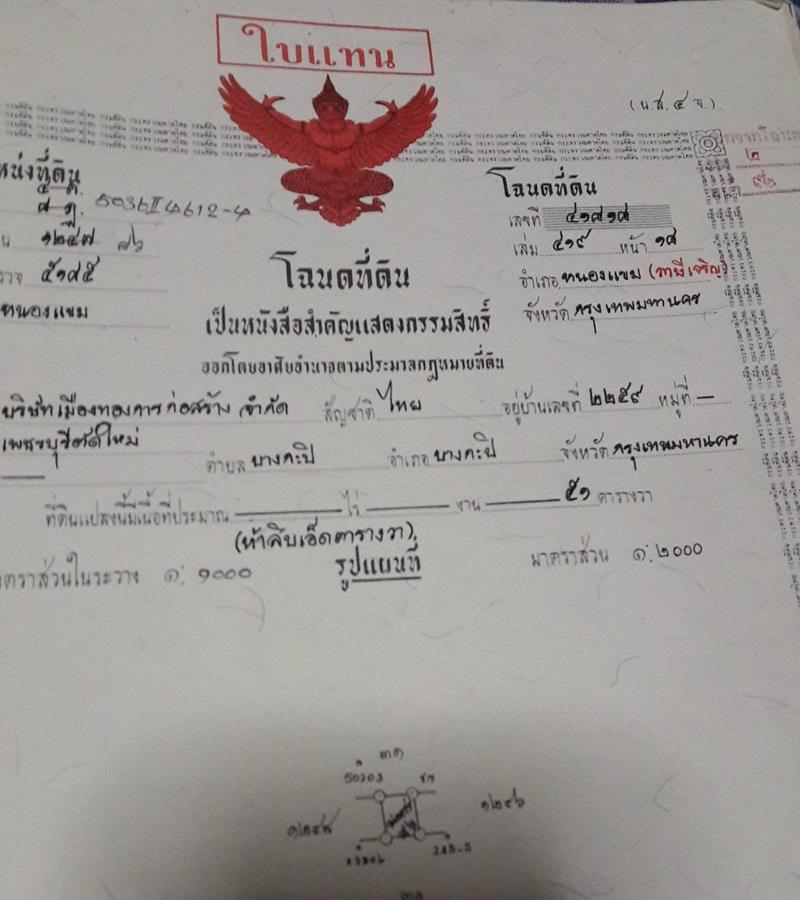 ใบแทน
(น.ส. ๔ จ.)
โฉนดที่ดิน
5036 II 4612-4
เลขที่ ๔๑๘๑๘
๑๒๔๗ ๗๖
เล่ม ๔๑๙ หน้า ๑๘
๕๑๔๕
อำเภอ หนองแขม (ภาษีเจริญ)
หนองแขม
จังหวัด กรุงเทพมหานคร
โฉนดที่ดิน
เป็นหนังสือสำคัญแสดงกรรมสิทธิ์
ออกโดยอาศัยอำนาจตามประมวลกฎหมายที่ดิน
บริษัท เมืองทองการก่อสร้าง จำกัด สัญชาติ ไทย อยู่บ้านเลขที่ ๒๒๕๙ หมู่ที่ —
เพชรบุรีตัดใหม่ ตำบล บางกะปิ อำเภอ บางกะปิ จังหวัด กรุงเทพมหานคร
ที่ดินแปลงนี้มีเนื้อที่ประมาณ — ไร่ — งาน — ๕๑ ตารางวา
(ห้าสิบเอ็ดตารางวา)
รูปแผนที่
มาตราส่วนในระวาง ๑:๑๐๐๐ มาตราส่วน ๑:๒๐๐๐
๑๒๔๖